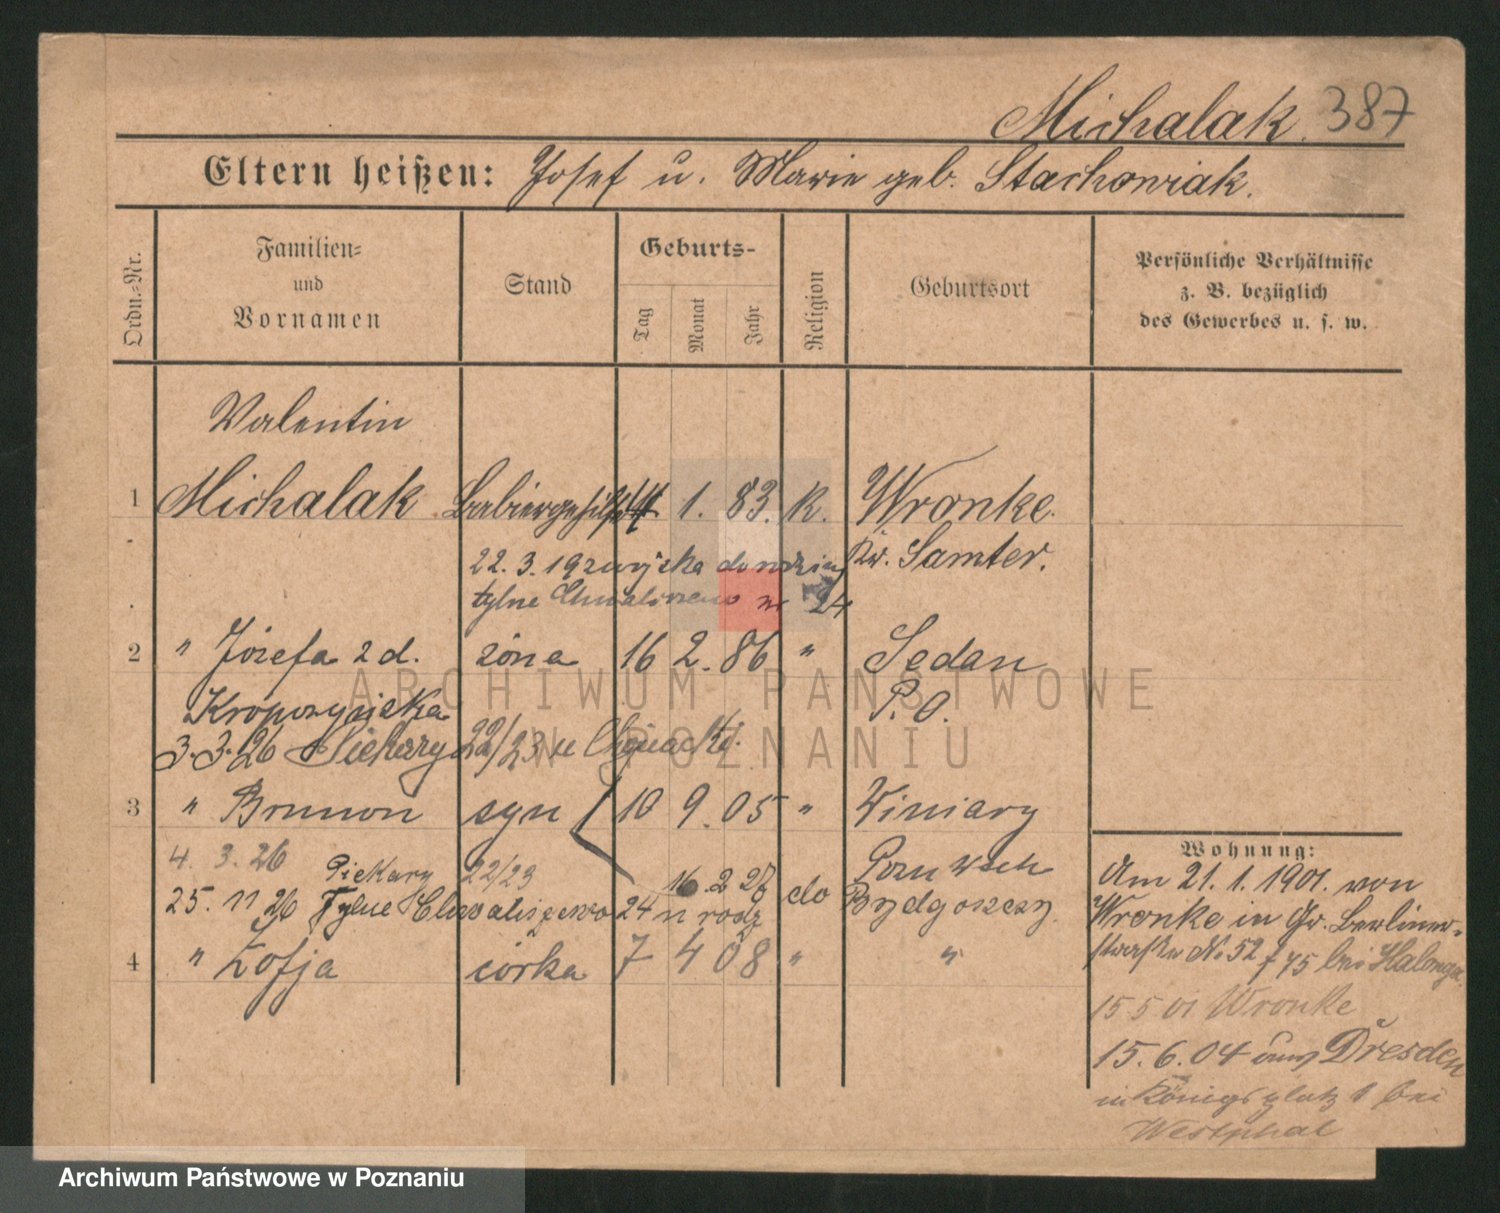 Michalak. 387
Eltern heißen: Josef u. Marie geb. Stachowiak.
Ordn.-Nr.
Familien-
und
Vornamen
Stand
Geburts-
Tag
Monat
Jahr
Religion
Geburtsort
Persönliche Verhältnisse
z. B. bezüglich
des Gewerbes u. s. w.
Valentin
1 Michalak Barbiergehilfe 14 1. 83. K. Wronke.
Kr. Samter.
22. 3. 19 z wojska do rodziny
tylne Chwaliszewo nr 24
2 " Józefa z d. żona 16 2. 86 " Sedan
P. O.
3. 3. 26 Piekary 22/23 u Chojnacki.
3 " Brunon syn 10 9. 05 " Winiary
Pozn Wsch
4. 3. 26 Piekary 22/23 16. 2 27 do Bydgoszczy
25. 11 26 Tylne Chwaliszewo 24 u rodz
4 " Zofja córka 7 4 08 " "
Wohnung:
Am 21. 1. 1901. von
Wronke in Gr. Berliner-
straße No 52 / 75 bei
15 5 01 Wronke
15. 6. 04 aus Dresden
in Königsplatz 1 bei
Westphal
ARCHIWUM PAŃSTWOWE
W POZNANIU
Archiwum Państwowe w Poznaniu